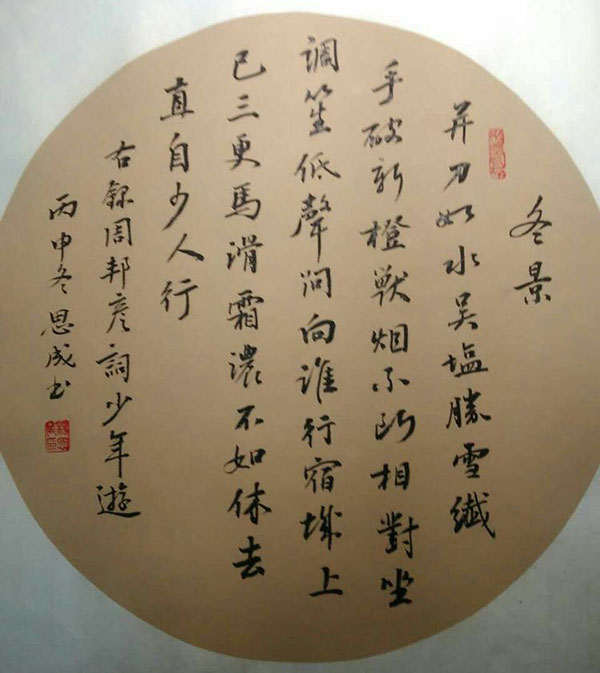 冬景
并刀如水吴塩勝雪纖
手破新橙獸烟不断相對坐
調笙低聲问向誰行宿城上
已三更馬滑霜濃不如休去
直自少人行
右録周邦彦詞少年遊
丙申冬思成书